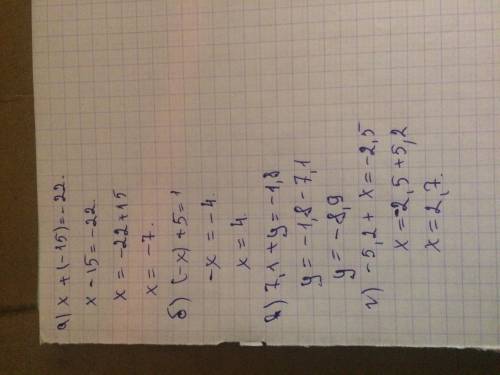 а) x + (-15) = -22.
x - 15 = -22.
x = -22 + 15
x = -7.
б) (-x) + 5 = 1
-x = -4.
x = 4.
в) 7,1 + y = -1,8
y = -1,8 - 7,1
y = -8,9
г) -5,2 + x = -2,5
x = -2,5 + 5,2
x = 2,7.